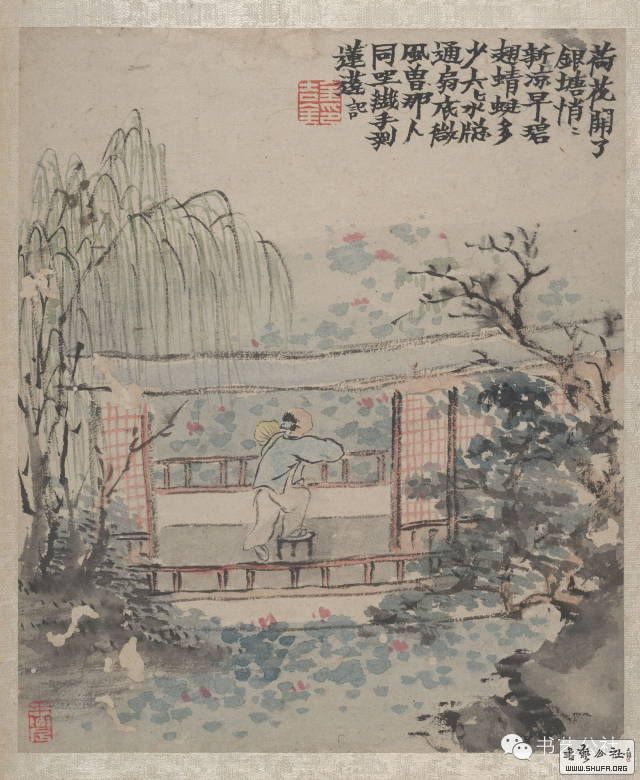 荷花開了
銀塘悄〻
新涼早碧
翅蜻蜓多
少六〻水牕
通扇底微
風曾那人
同坐纖手剝
蓮蓬記
书艺公社
書藝公社
WWW.SHUFA.ORG